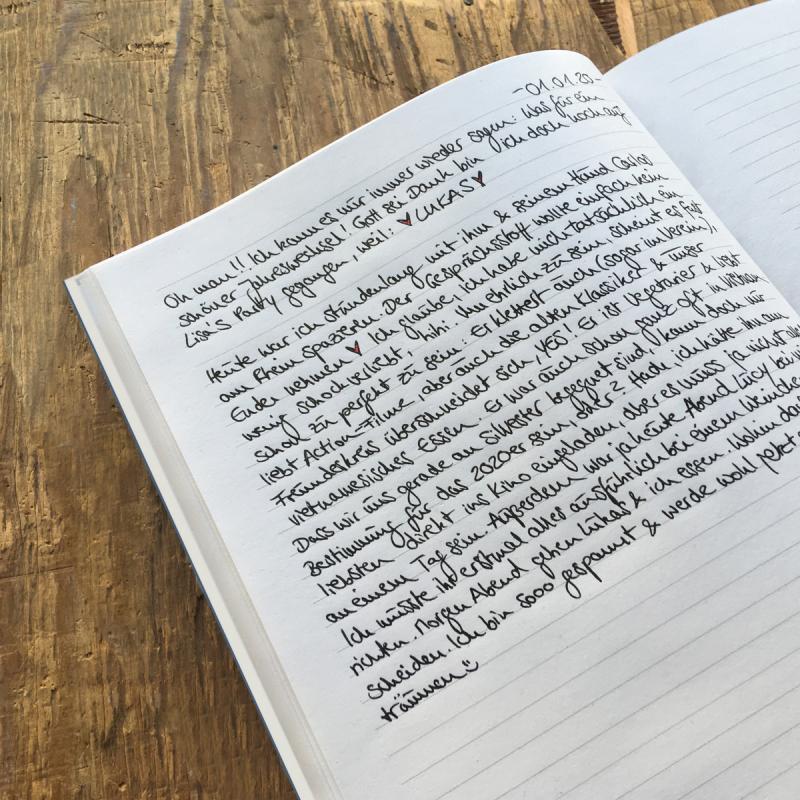 - 01.01.20 -
Oh man!! Ich kann es mir immer wieder sagen: Was für ein
schöner Jahreswechsel! Gott sei Dank bin ich doch noch auf
Lisa's Party gegangen, weil: ♥LUKAS♥
Heute war ich stundenlang mit ihm & seinem Hund Carlos
am Rhein spazieren. Der Gesprächsstoff wollte einfach kein
Ende nehmen ♥ Ich glaube, ich habe mich tatsächlich ein
wenig schockverliebt, hihi. Um ehrlich zu sein, scheint es fast
schon zu perfekt zu sein: Er klettert auch (sogar im Verein),
liebt Action-Filme, aber auch die alten Klassiker & unser
Freundeskreis überschneidet sich, YES! Er ist Vegetarier & liebt
vietnamesisches Essen. Er war auch schon ganz oft in
Dass wir uns gerade an Silvester begegnet sind, kann doch nur
Bestimmung für das 2020er sein, oder? Hach, ich hätte ihn am
liebsten direkt ins Kino eingeladen, aber es muss ja nicht alles
an einem Tag sein. Außerdem war ja heute Abend Lucy bei
Ich musste ihr erstmal alles ausführlich bei einem
richten. Morgen Abend gehen Lukas & ich essen. Wohin
scheiden. Ich bin sooo gespannt & werde wohl
träumen